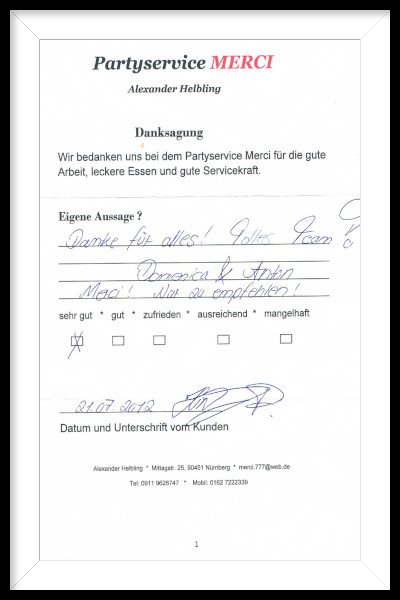 Partyservice MERCI
Alexander Helbling
Danksagung
Wir bedanken uns bei dem Partyservice Merci für die gute
Arbeit, leckere Essen und gute Servicekraft.
Eigene Aussage ?
Danke für alles! Tolles Team
Domenica & Anton
Merci! Nur zu empfehlen!
sehr gut * gut * zufrieden * ausreichend * mangelhaft
X
21.07.2012
Datum und Unterschrift vom Kunden
Alexander Helbling * Mittagstr. 25, 90451 Nürnberg * merci.777@web.de
Tel: 0911 9626747 * Mobil: 0162 7222339
1